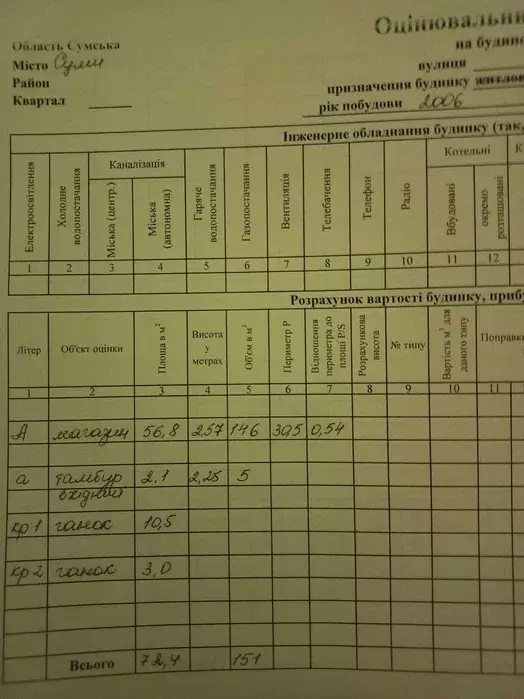 Оцінювальни
Область Сумська
на будино
Місто Суми
вулиця
Район
призначення будинку житлов
Квартал
рік побудови 2006
Інженерне обладнання будинку (так,
Електроосвітлення
Холодне водопостачання
Каналізація
Міська (центр.)
Міська (автономна)
Гаряче водопостачання
Газопостачання
Вентиляція
Телебачення
Телефон
Радіо
Котельні
Вбудовані
окремо розташовані
1 2 3 4 5 6 7 8 9 10 11 12
Розрахунок вартості будинку, прибу
Літер
Об'єкт оцінки
Площа в м²
Висота у метрах
Об'єм в м³
Периметр Р
Відношення периметра до площі P/S
Розрахункова висота
№ типу
Вартість м³ для даного типу
Поправк
1 2 3 4 5 6 7 8 9 10 11
А магазин 56,8 257 146 395 0,54
а тамбур вхідний 2,1 2,25 5
кр 1 ганок 10,5
кр 2 ганок 3,0
Всього 72,4 151